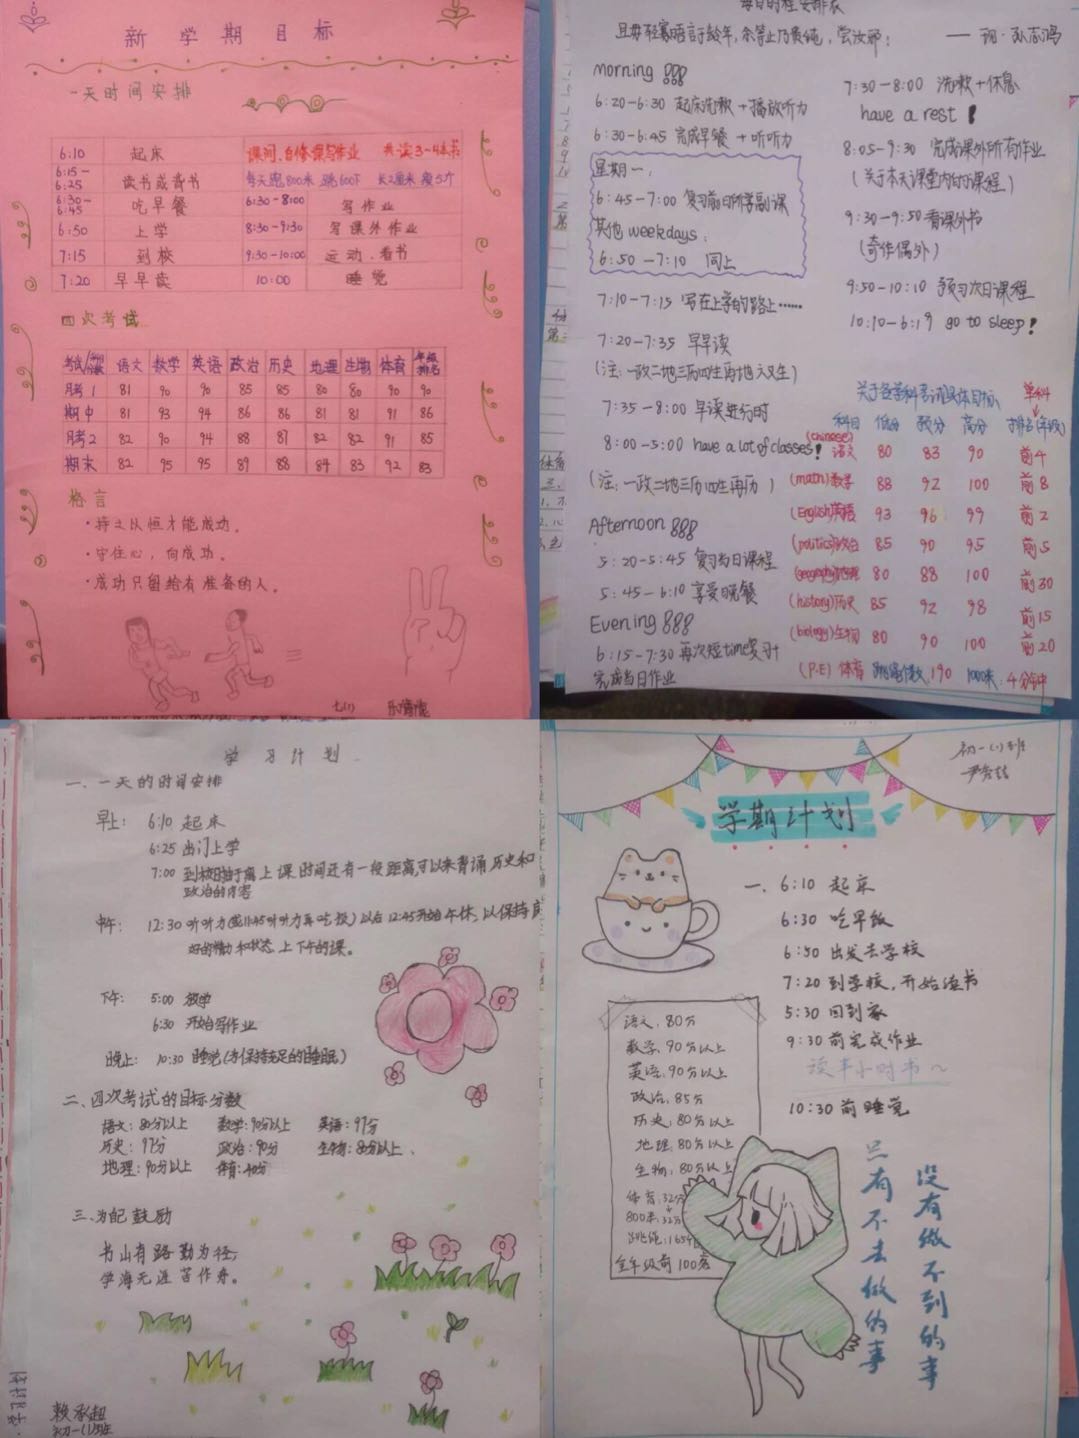 新学期目标
一天时间安排
6:10 起床 课间,自修课写作业 共读3-4本书
6:15-6:25 读书或背书 每天跑800米 跳600下 长2厘米 瘦5斤
6:30-6:45 吃早餐 6:30-8:00 写作业
6:50 上学 8:30-9:30 写课外作业
7:15 到校 9:30-10:00 运动.看书
7:20 早早读 10:00 睡觉
四次考试
语文 数学 英语 政治 历史 地理 生物 体育 年级排名
月考1 81 90 90 85 85 80 80 90 90
期中 81 93 94 86 86 81 81 91 86
月考2 82 90 94 88 87 82 82 91 85
期末 82 95 95 89 88 84 83 92 83
格言
·持之以恒才能成功。
·守住心,向成功。
·成功只留给有准备的人。
七(1)
每日时程安排表
morning
6:20-6:30 起床洗漱+播放听力
6:30-6:45 完成早餐+听听力
星期一:
6:45-7:00 复习前日所学副课
其他weekdays:
6:50-7:10 同上
7:10-7:15 写在上学的路上……
7:20-7:35 早早读
(注:一政二地三历四生再地六又生)
7:35-8:00 早读进行时
8:00-5:00 have a lot of classes!
(注:一政二地三历四生再历)
Afternoon
5:20-5:45 复习当日课程
5:45-6:10 享受晚餐
Evening
6:15-7:30 再次短time复习+
完成当日作业
7:30-8:00 洗漱+休息
have a rest!
8:05-9:30 完成课外所有作业
(关于本天课堂内的课程)
9:30-9:50 看课外书
(奇作偶外)
9:50-10:10 预习次日课程
10:10-6:19 go to sleep!
关于各学科考试具体目标 单科
科目 低分 我分 高分 排名(年级)
(chinese)语文 80 83 90 前4
(math)数学 88 92 100 前8
(English)英语 93 96 99 前2
(politics)政治 85 90 95 前5
(geography)地理 80 88 100 前30
(history)历史 85 92 98 前15
(biology)生物 80 90 100 前20
(P.E)体育 跳绳个数:190 1000米:4分钟
学习计划
一、一天的时间安排
早上: 6:10 起床
6:25 出门上学
7:00 到校时由于离上课时间还有一段距离,可以来背诵历史和
政治的内容
中午: 12:30 听听力(或11:45听听力再吃饭)以后12:45开始午休,以保持良
好的精力和状态上下午的课。
下午: 5:00 放学
6:30 开始写作业
晚上: 10:30 睡觉(为保持充足的睡眠)
二、四次考试的目标分数
语文:80分以上 数学:90分以上 英语:97分
历史:97分 政治:90分 生物:80分以上、
地理:90分以上 体育:40分
三、为自己鼓励
书山有路勤为径,
学海无涯苦作舟。
赖承超
初一(1)班
初一(1)班
学期计划
一、6:10 起床
6:30 吃早饭
6:50 出发去学校
7:20 到学校,开始读书
5:30 回到家
9:30 前完成作业
读半小时书~
10:30 前睡觉
语文:80分
数学:90分以上
英语:90分以上
政治:85分
历史:80分以上
地理:80分以上
生物:80分以上
体育:32分
800米:32分
跳绳:165个
全年级前100名
只有不去做的事
没有做不到的事